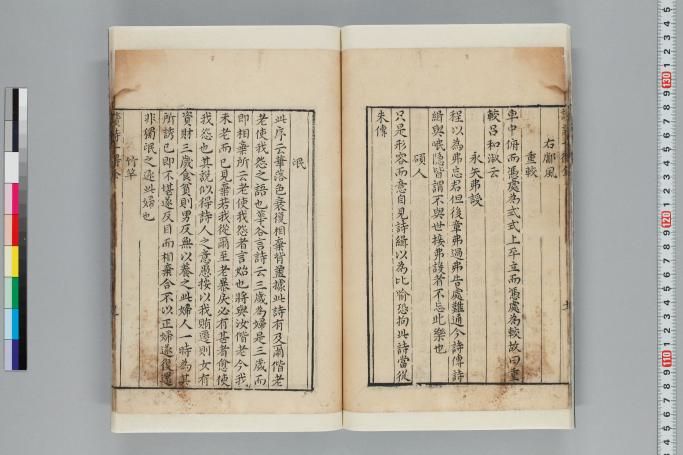 右鄘風
重較
車中俯而憑處為式式上平立而憑處為較故曰重
較呂和叔云
永矢弗諼
程以為弗忘君但後章弗過弗告處難通今詩傳詩
緝與岷隱皆謂不與世接弗諼者不忘此樂也
碩人
只是形容而意自見詩緝以為比喻恐拘此詩當從
朱傳
氓
此序云華落色衰復相棄背蓋據此詩有及爾偕老
老使我怨之語也華谷言詩云三歲為婦是三歲而
即相棄所云老使我怨者言始也將與汝偕老今我
未老而已見棄若我從爾至老暴戾必有甚者愈使
我怨也其說似得詩人之意愚按以我賄遷則女有
資財三歲食貧則男反無以養之此婦人一時為其
所誘已即不堪遂反目而相棄合不以正婦遂復還
非獨氓之逐此婦也
竹竿